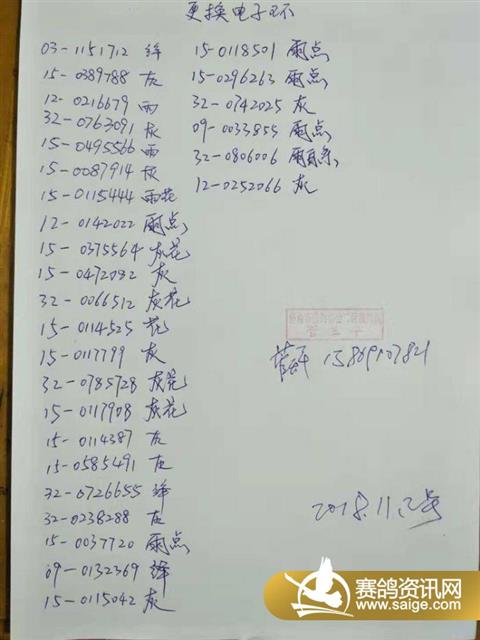 更换电子环
03-1151712 绛
15-0389788 灰
12-0216679 雨
32-0763091 灰
15-0495566 雨
15-0087914 灰
15-0115444 雨花
12-0142022 雨点
15-0375564 灰花
15-0472082 灰
32-0066512 灰花
15-0114525 花
15-0117799 灰
32-0785728 灰花
15-0117908 灰花
15-0114387 灰
15-0585491 灰
32-0726655 绛
32-0238288 灰
15-0037720 雨点
09-0132369 绛
15-0115042 灰
15-0118501 雨点
15-0296263 雨点
32-0742025 灰
09-0033855 雨点
32-0806006 雨
12-0252066 灰
2018.11.12号
赛鸽资讯网
www.saige.com